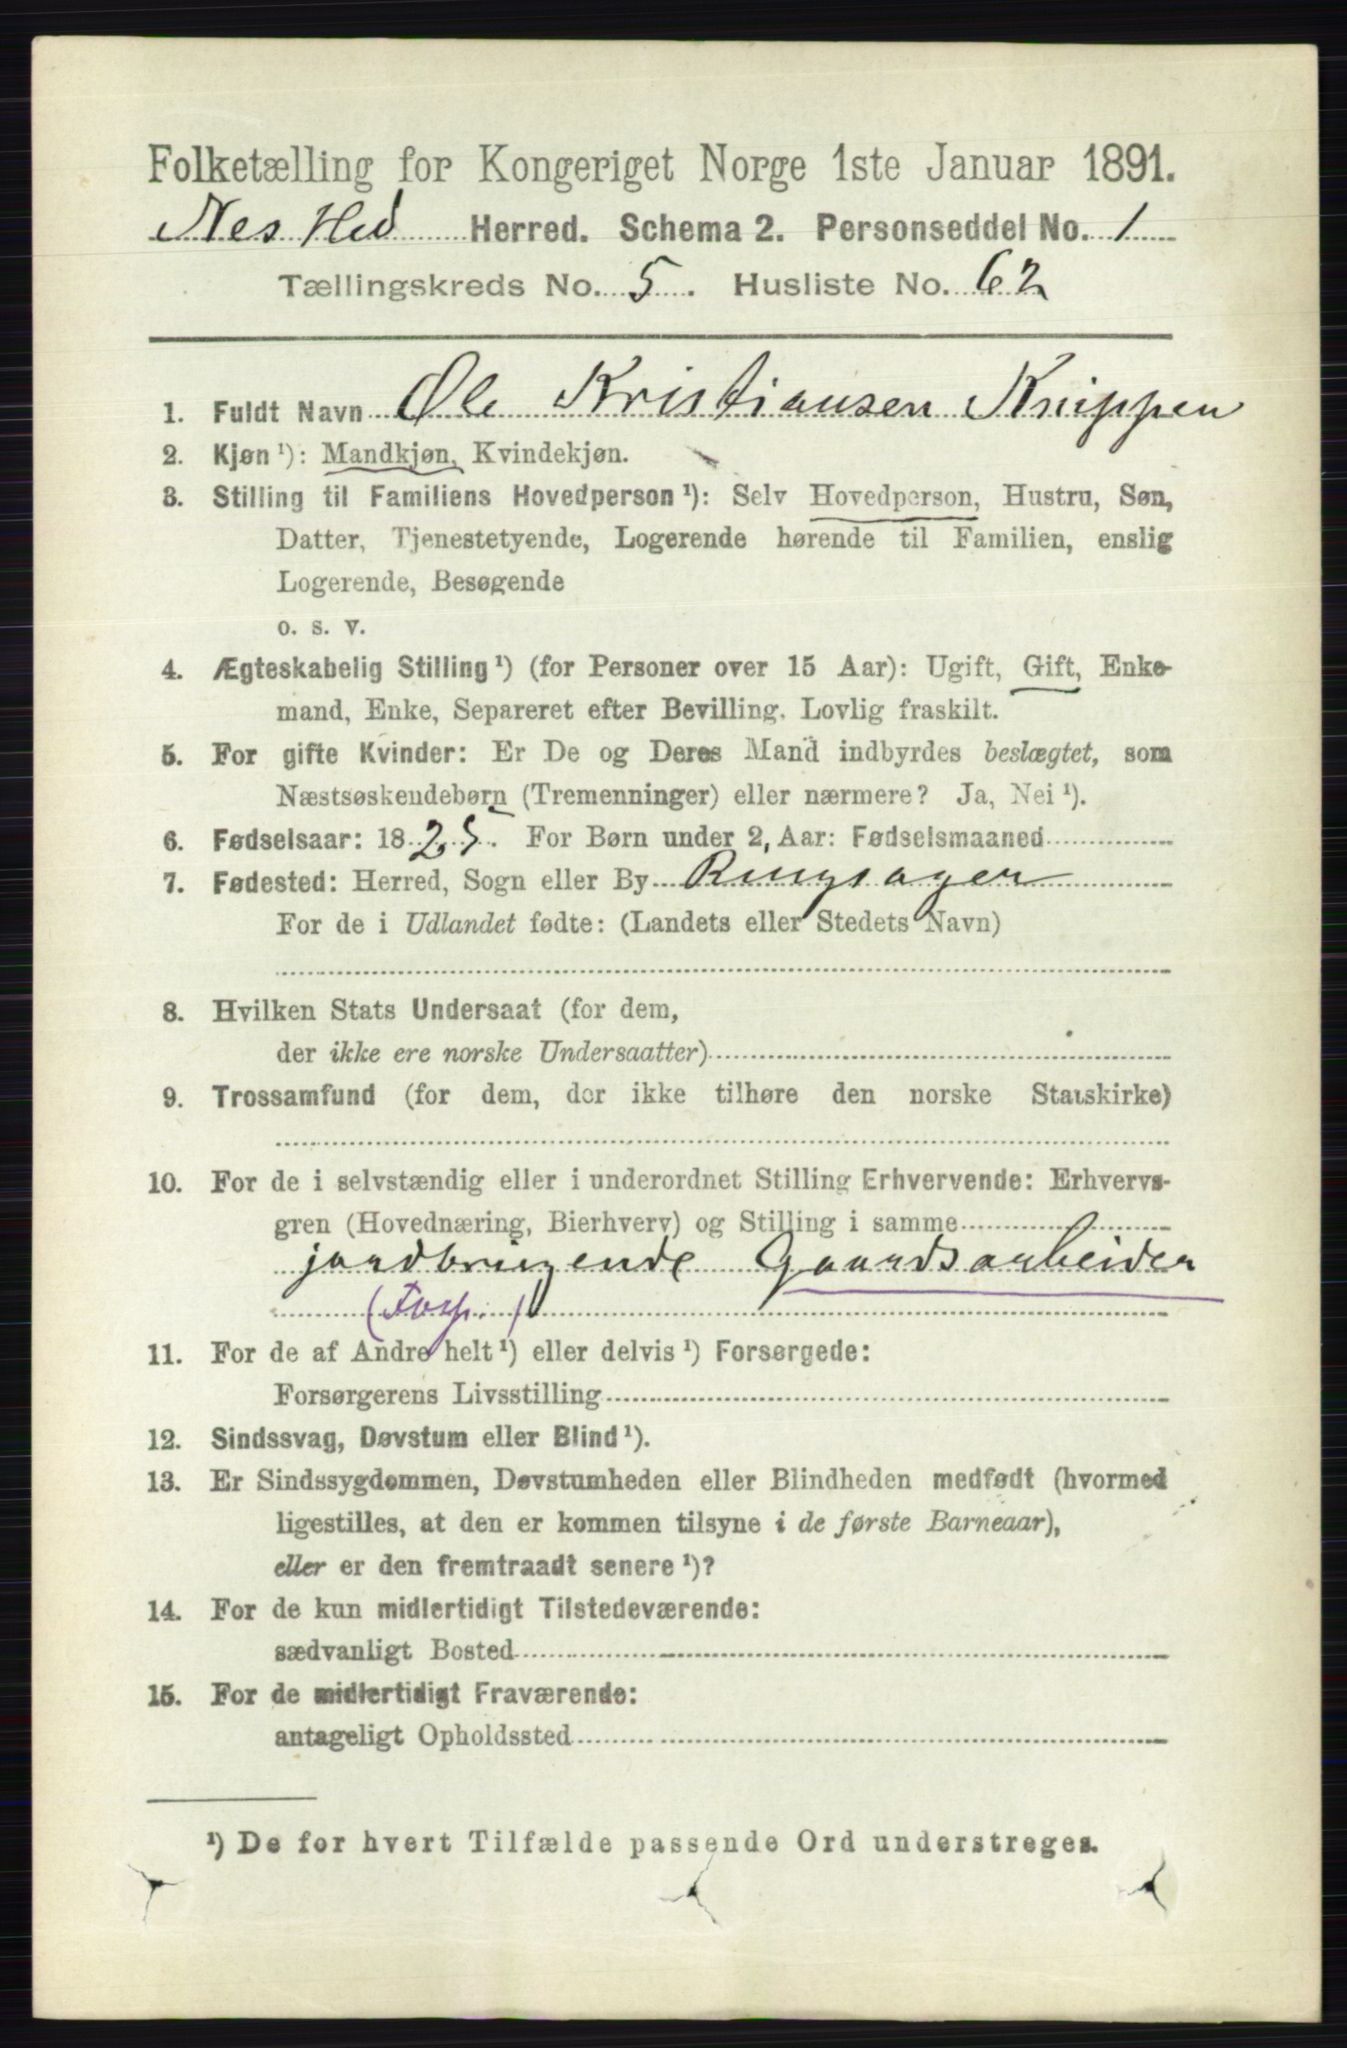 Folketælling for Kongeriget Norge 1ste Januar 1891.
Nes Hed Herred. Schema 2. Personseddel No. 1
Tællingskreds No. 5. Husliste No. 62
1. Fuldt Navn Ole Kristiansen Knippen
2. Kjøn ¹): Mandkjøn, Kvindekjøn.
3. Stilling til Familiens Hovedperson ¹): Selv Hovedperson, Hustru, Søn,
Datter, Tjenestetyende, Logerende hørende til Familien, enslig
Logerende, Besøgende
o. s. v.
4. Ægteskabelig Stilling ¹) (for Personer over 15 Aar): Ugift, Gift, Enke-
mand, Enke, Separeret efter Bevilling. Lovlig fraskilt.
5. For gifte Kvinder: Er De og Deres Mand indbyrdes beslægtet, som
Næstsøskendebørn (Tremenninger) eller nærmere? Ja, Nei ¹).
6. Fødselsaar: 1825. For Børn under 2 Aar: Fødselsmaaned
7. Fødested: Herred, Sogn eller By Ringsager
For de i Udlandet fødte: (Landets eller Stedets Navn)
8. Hvilken Stats Undersaat (for dem,
der ikke ere norske Undersaatter)
9. Trossamfund (for dem, der ikke tilhøre den norske Statskirke)
10. For de i selvstændig eller i underordnet Stilling Erhvervende: Erhvervs-
gren (Hovednæring, Bierhverv) og Stilling i samme
jordbrugende Gaardsarbeider
(Forp.)
11. For de af Andre helt ¹) eller delvis ¹) Forsørgede:
Forsørgerens Livsstilling
12. Sindssvag, Døvstum eller Blind ¹).
13. Er Sindssygdommen, Døvstumheden eller Blindheden medfødt (hvormed
ligestilles, at den er kommen tilsyne i de første Barneaar),
eller er den fremtraadt senere ¹)?
14. For de kun midlertidigt Tilstedeværende:
sædvanligt Bosted
15. For de midlertidigt Fraværende:
antageligt Opholdssted
¹) De for hvert Tilfælde passende Ord understreges.